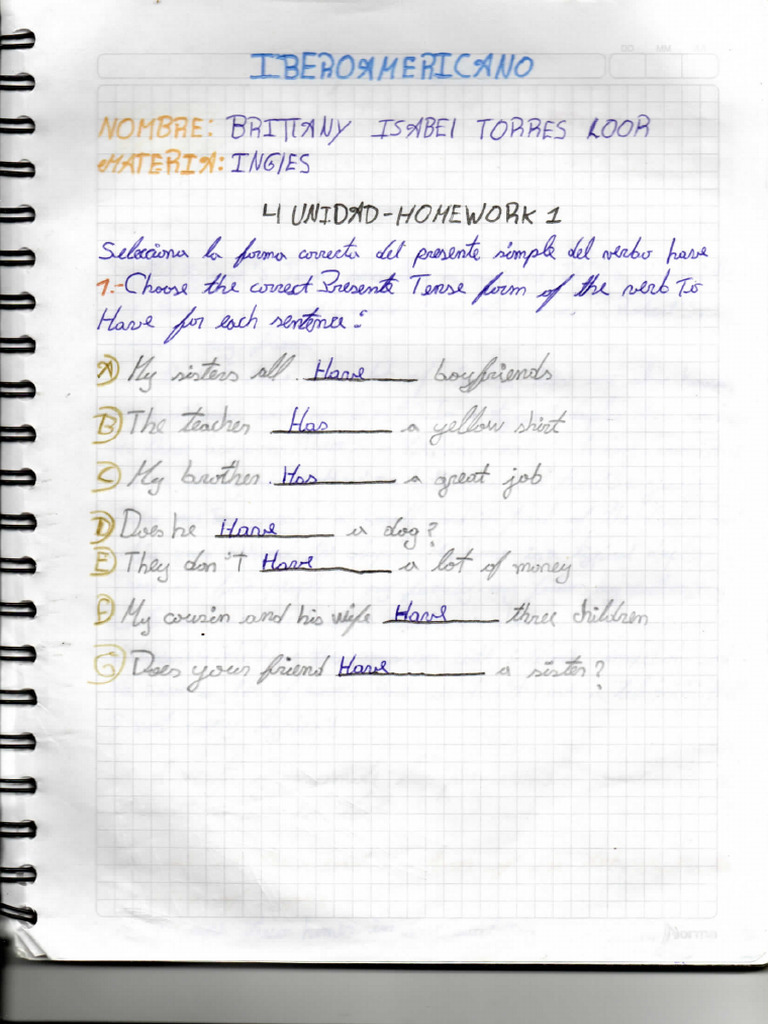 IBEROAMERICANO
NOMBRE: BRITTANY ISABEl TORRES LOOR
MATERIA: INGlES
4 UNIDAD-HOMEWORK 1
Selecciona la forma correcta del presente simple del verbo have
1.- Choose the correct Presente Tense form of the verb To
Have for each sentence:
A) My sisters all Have boyfriends
B) The teacher Has a yellow shirt
C) My brother Has a great job
D) Does he Have a dog?
E) They don't Have a lot of money
F) My cousin and his wife Have three children
G) Does your friend Have a sister?
Norma